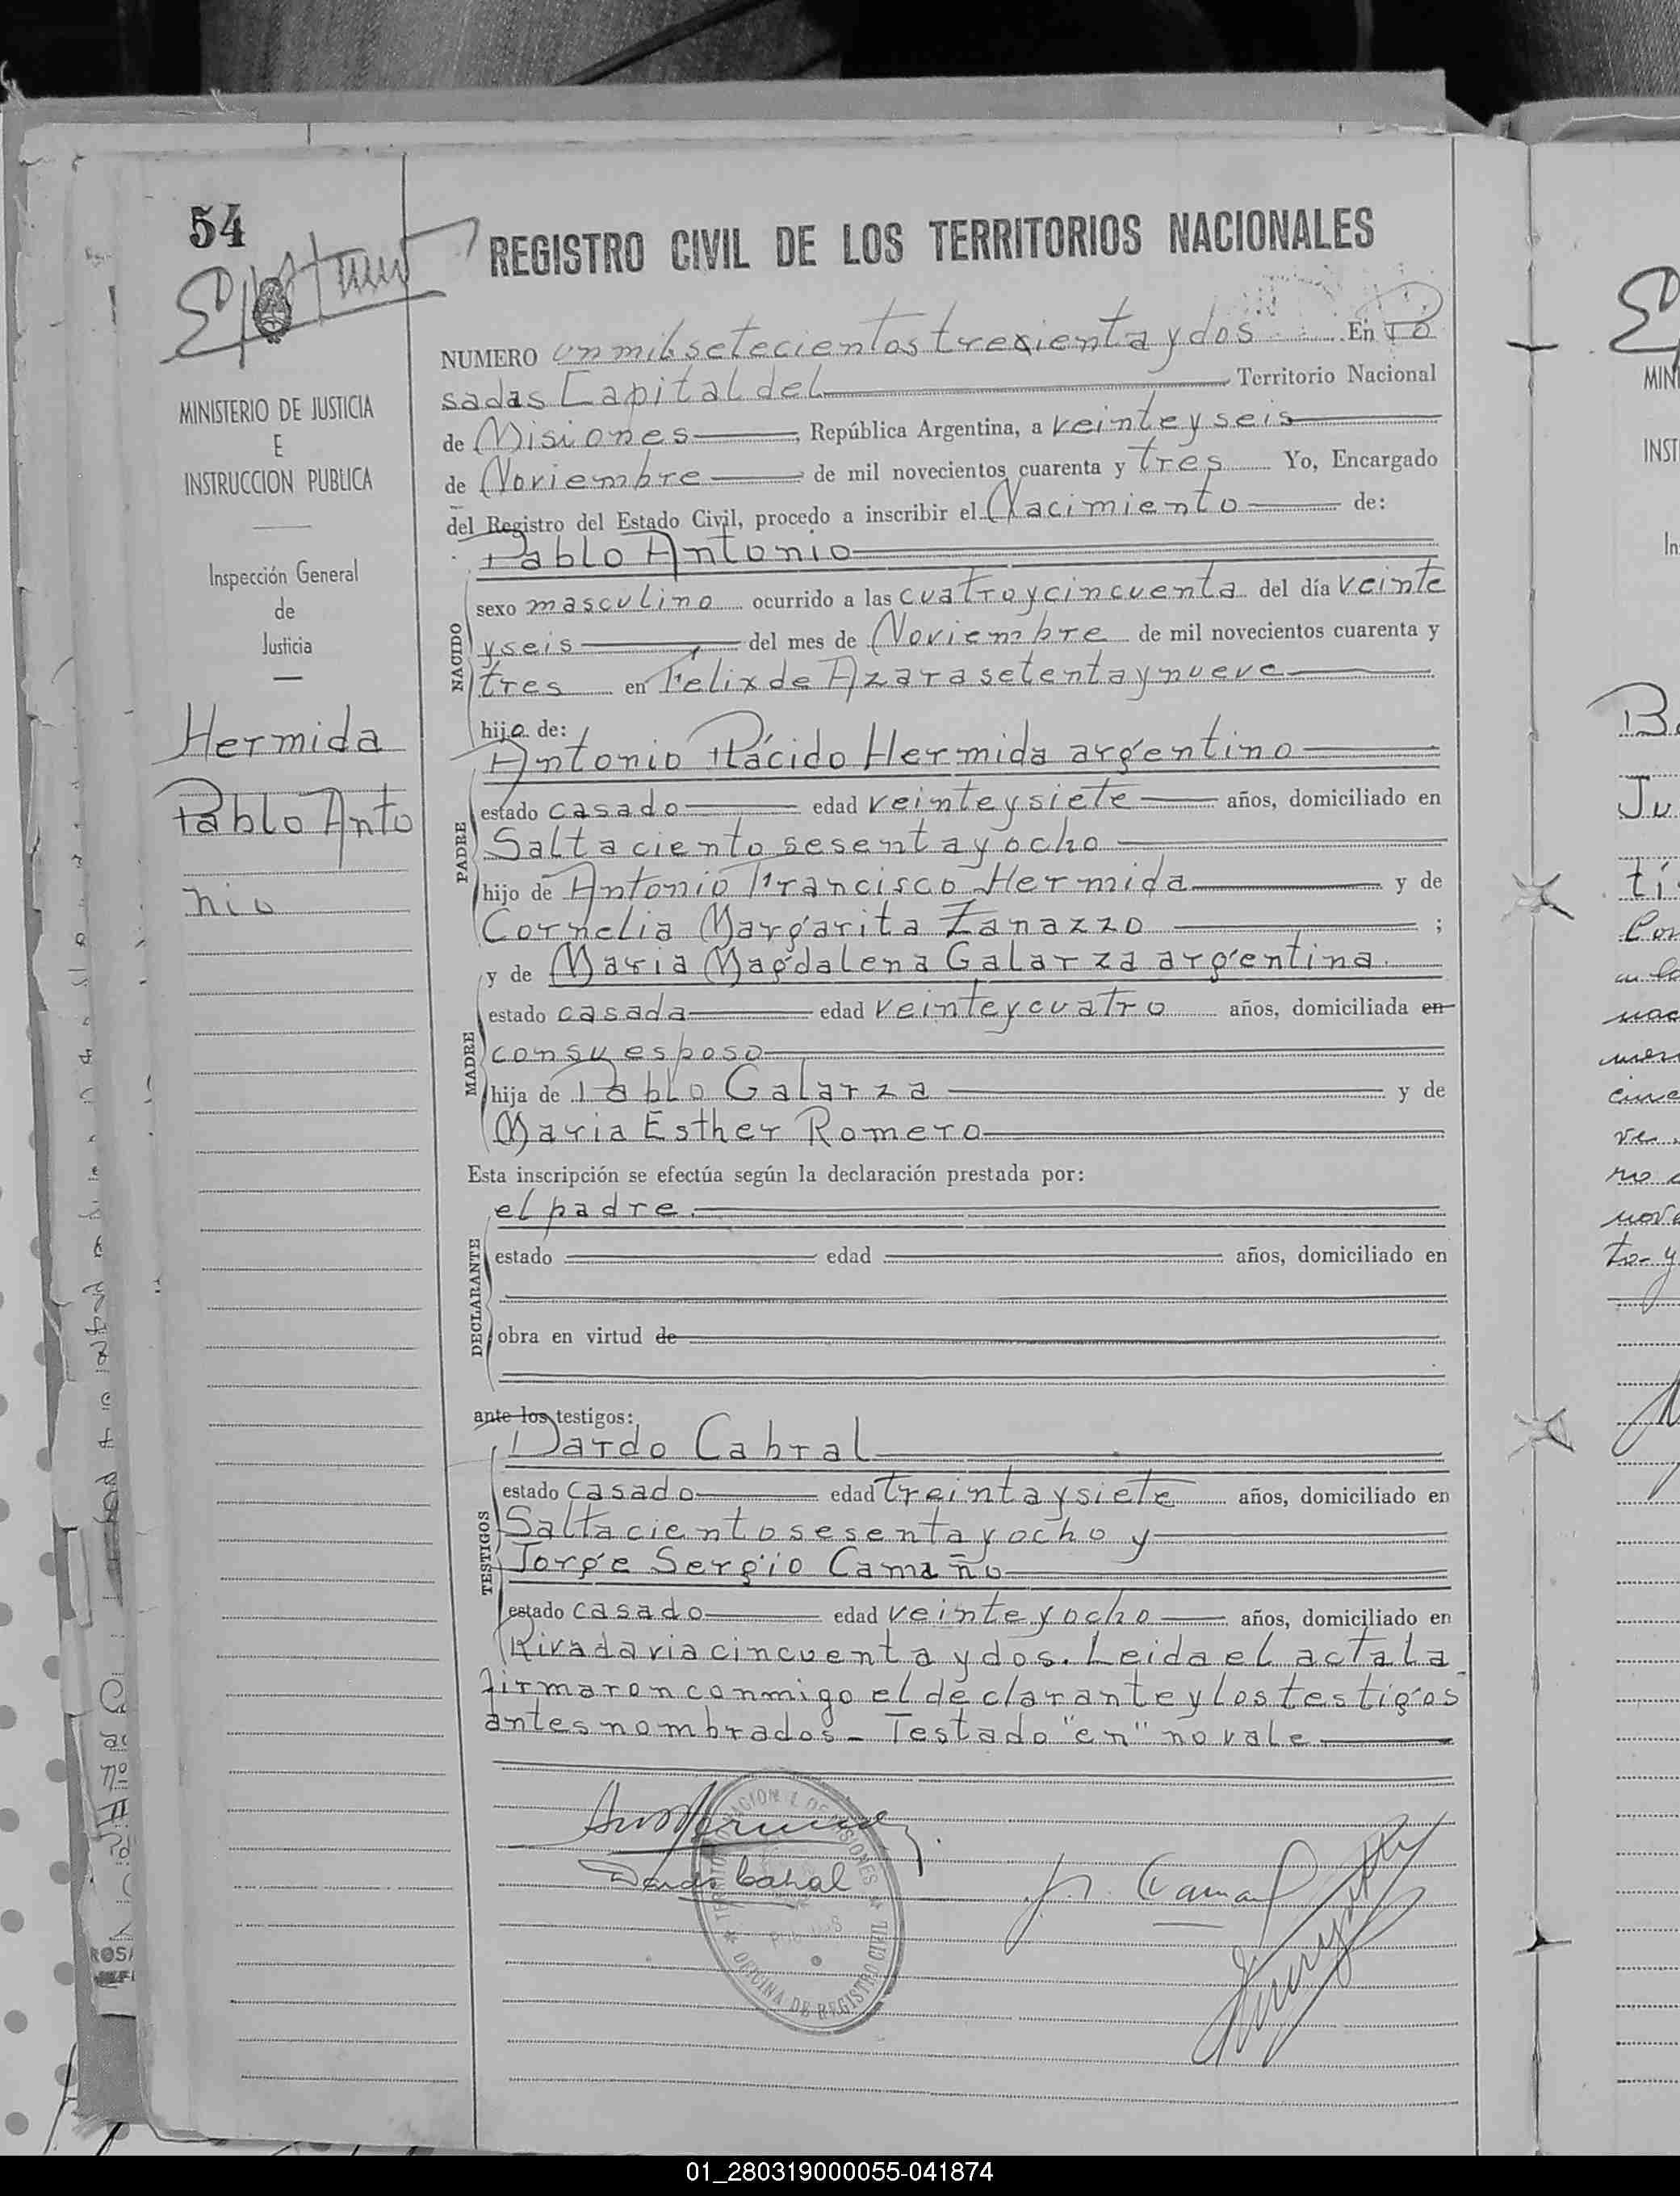 54
REGISTRO CIVIL DE LOS TERRITORIOS NACIONALES
MINISTERIO DE JUSTICIA
E
INSTRUCCION PUBLICA
Inspección General
de
Justicia
Hermida
Pablo Anto
nio
NUMERO un mil setecientos trexienta y dos En Po
sadas Capital del Territorio Nacional
de Misiones, República Argentina, a veinte y seis
de Noviembre de mil novecientos cuarenta y tres Yo, Encargado
del Registro del Estado Civil, procedo a inscribir el Nacimiento de:
Pablo Antonio
NACIDO
sexo masculino ocurrido a las cuatro y cincuenta del día veinte
y seis del mes de Noviembre de mil novecientos cuarenta y
tres en Félix de Azara setenta y nueve
hijo de:
Antonio Plácido Hermida argentino
PADRE
estado casado edad veinte y siete años, domiciliado en
Salta ciento sesenta y ocho
hijo de Antonio Francisco Hermida y de
Cornelia Margarita Zanazzo ;
y de Maria Magdalena Galarza argentina.
MADRE
estado casada edad veinte y cuatro años, domiciliada en
con su esposo
hija de Pablo Galarza y de
Maria Esther Romero
Esta inscripción se efectúa según la declaración prestada por:
el padre.
DECLARANTE
estado edad años, domiciliado en
obra en virtud de
ante los testigos:
Dardo Cabral
TESTIGOS
estado casado edad treinta y siete años, domiciliado en
Salta ciento sesenta y ocho y
Jorge Sergio Camaño
estado casado edad veinte y ocho años, domiciliado en
Rivadavia cincuenta y dos. Leida el acta la
firmaron conmigo el declarante y los testigos
antes nombrados - Testado "en" no vale
Dardo Cabral
OFICINA DE REGISTRO CIVIL
01_280319000055-041874